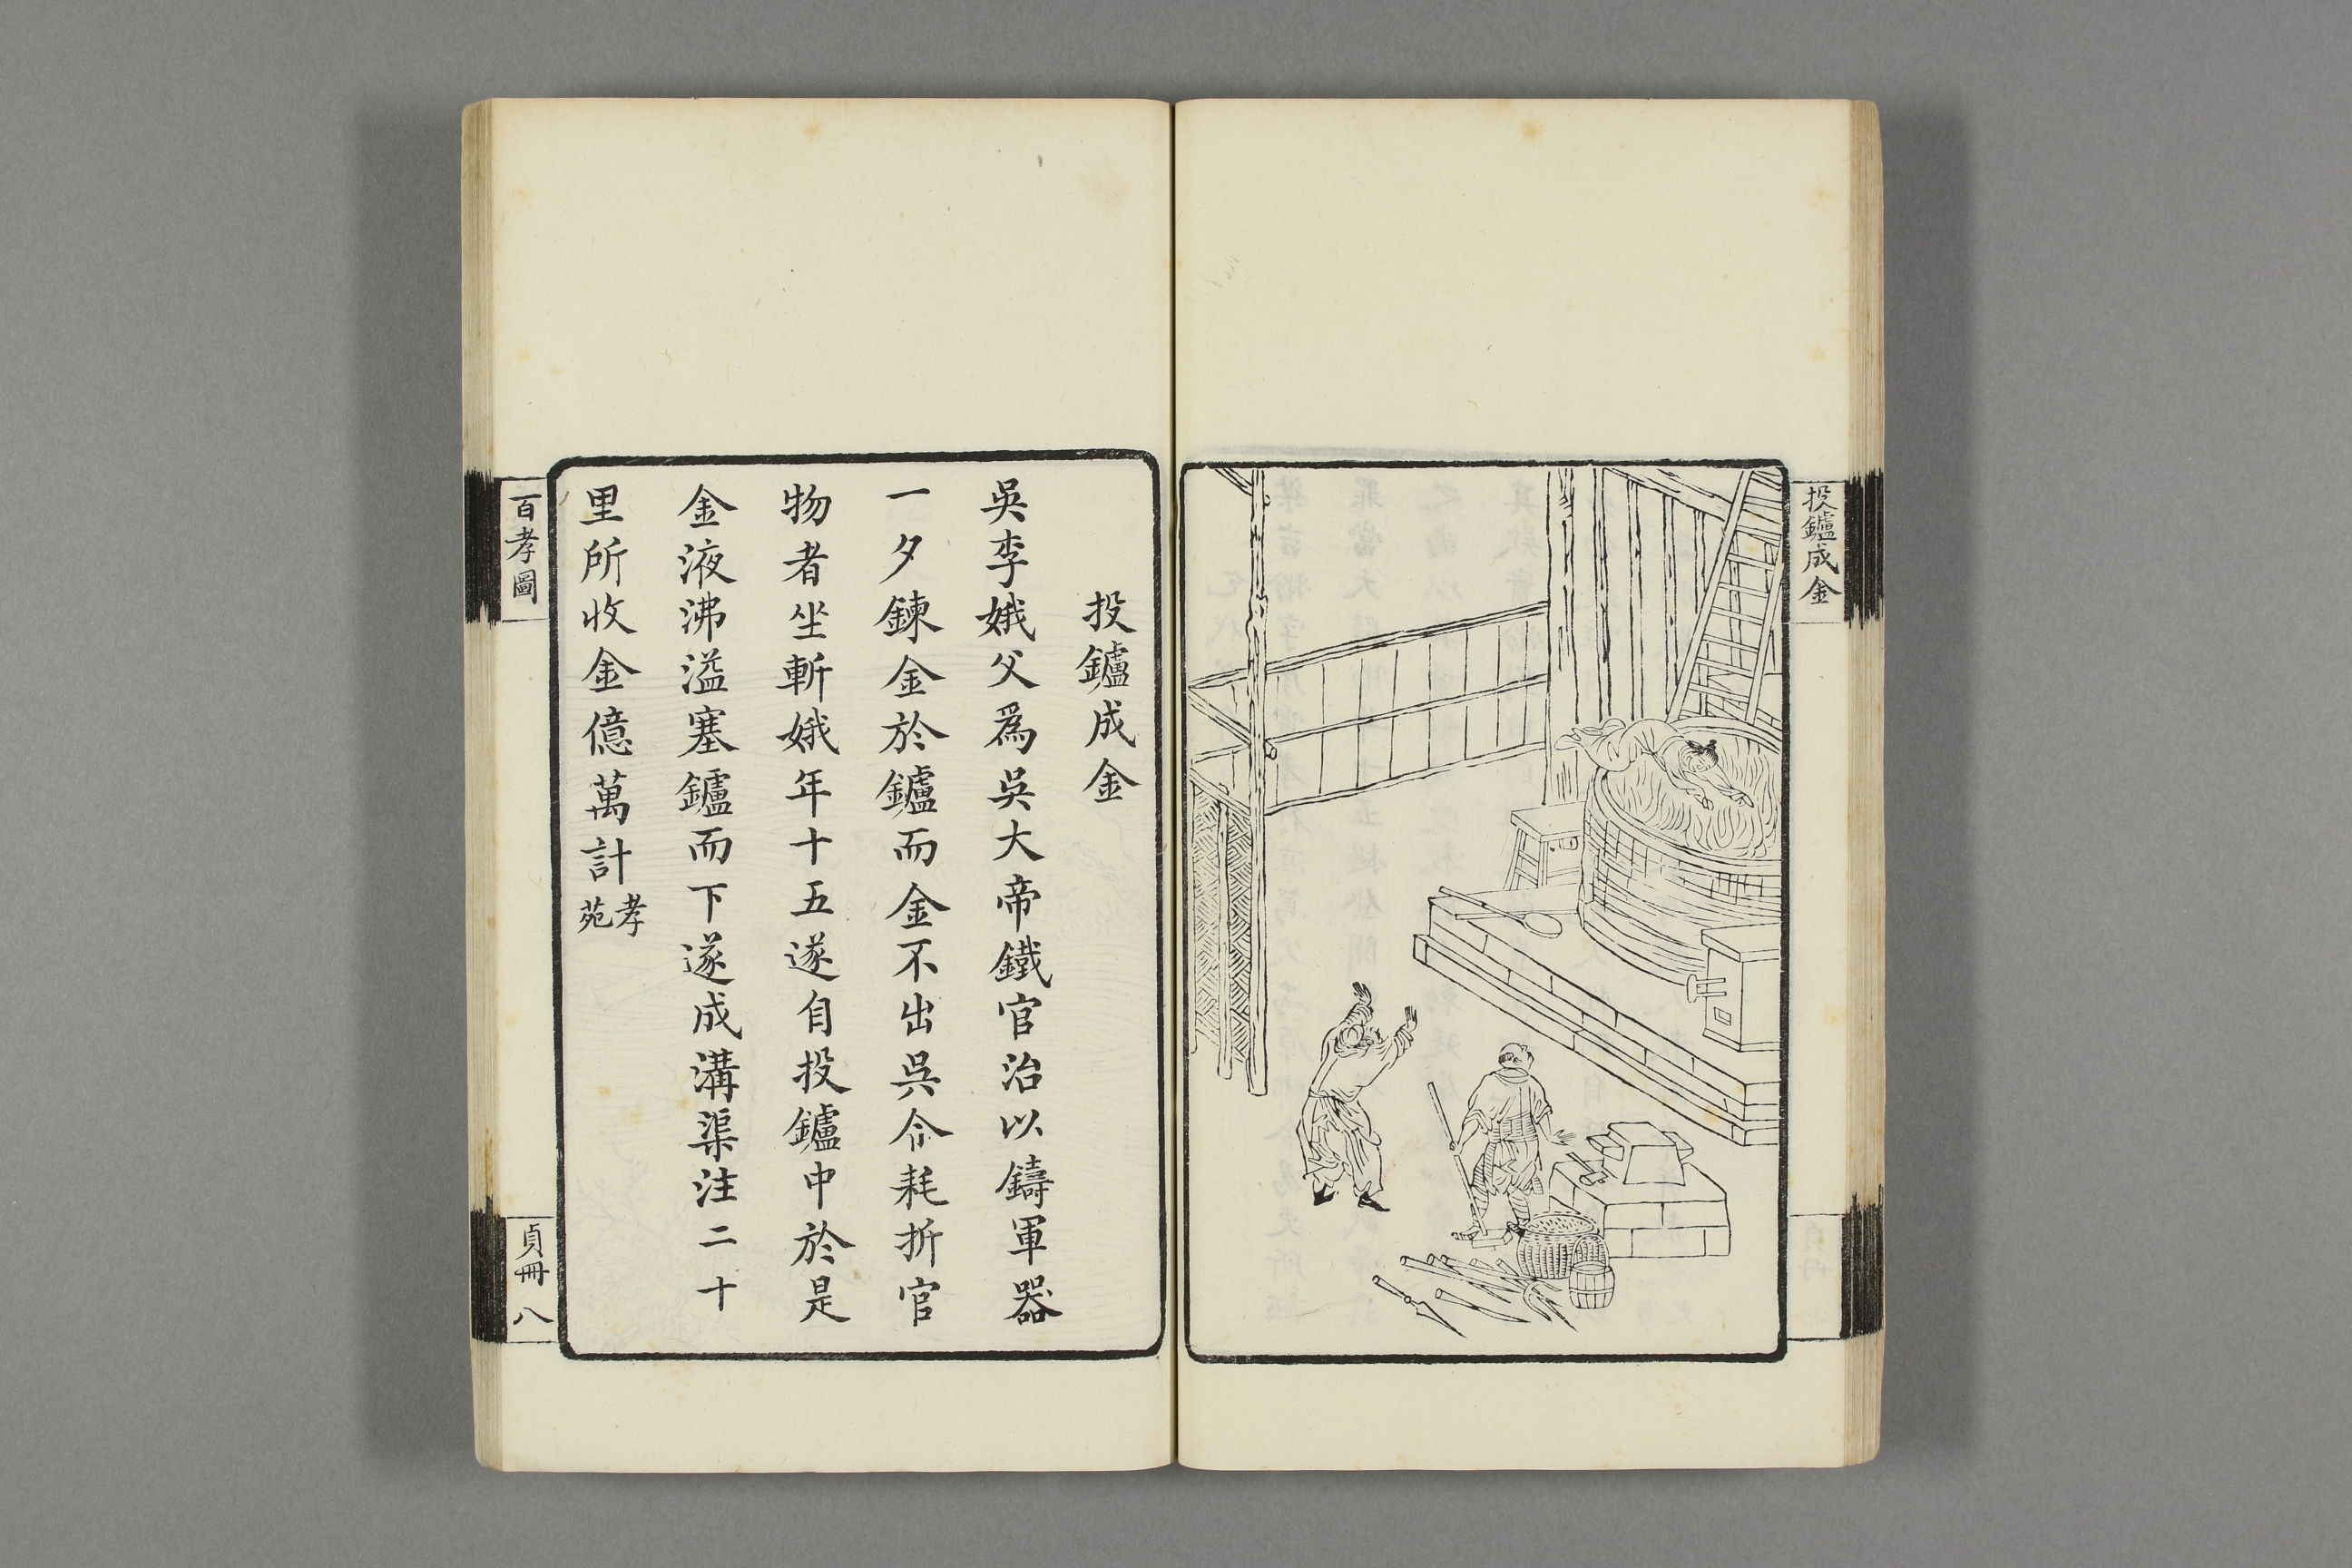 投鑪成金
投鑪成金
吳李娥父爲吳大帝鐵官冶以鑄軍器
一夕鍊金於鑪而金不出吳令耗折官
物者坐斬娥年十五遂自投鑪中於是
金液沸溢塞鑪而下遂成溝渠注二十
里所收金億萬計孝苑
百孝圖
貞冊
八